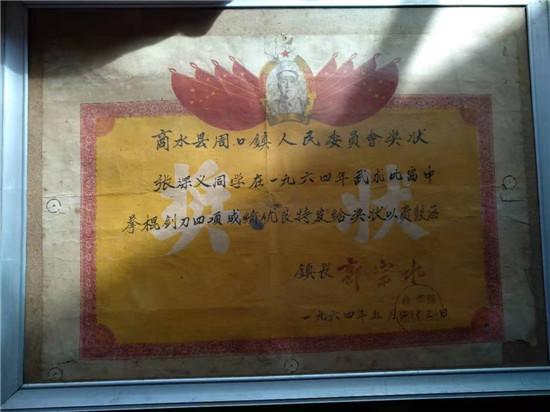 商水县周口镇人民委員會奖状
奖状
张深义同学在一九六四年武术比畄中
拳棍剑刀四项成绩优良特发给奖状以资鼓励
镇长 郭宗
一九六四年 月 十三日